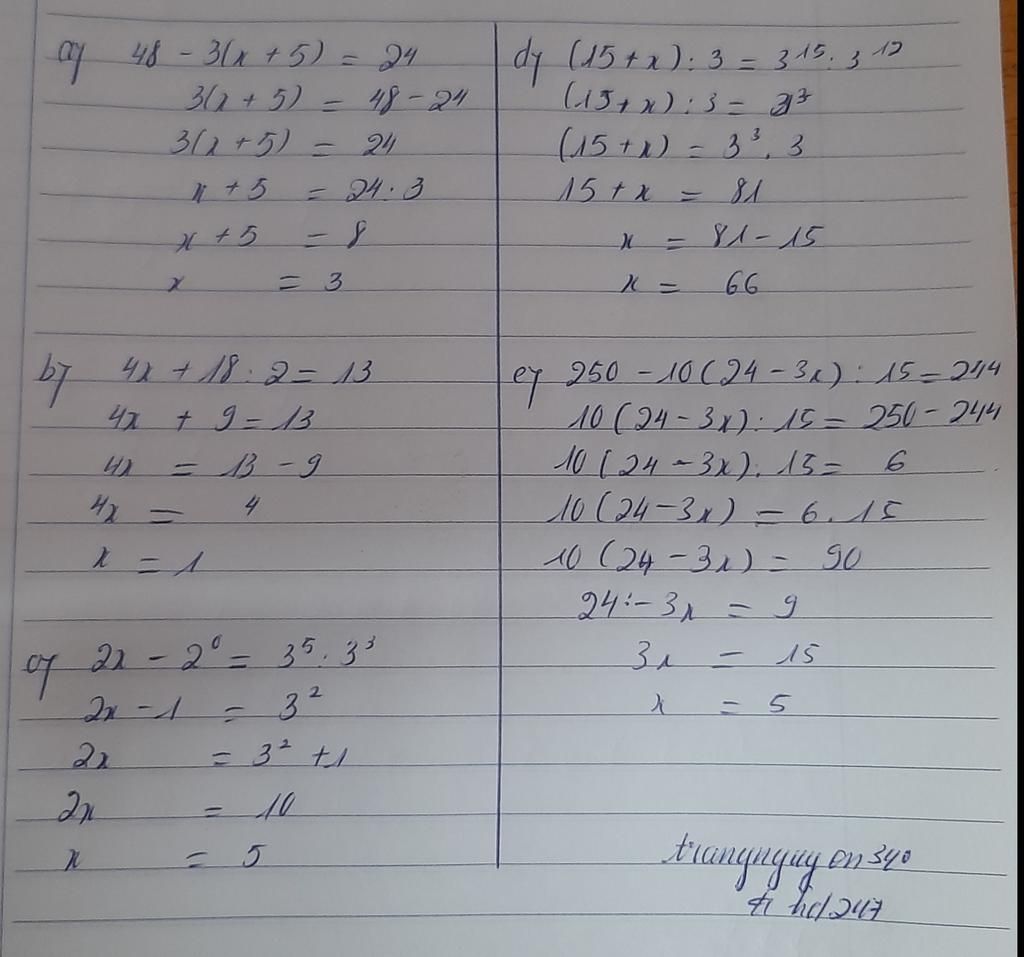 a) 48 - 3(x + 5) = 24
3(x + 5) = 48 - 24
3(x + 5) = 24
x + 5 = 24 : 3
x + 5 = 8
x = 3
b) 4x + 18 : 2 = 13
4x + 9 = 13
4x = 13 - 9
4x = 4
x = 1
c) 2x - 2⁰ = 3⁵ : 3³
2x - 1 = 3²
2x = 3² + 1
2x = 10
x = 5
d) (15 + x) : 3 = 3¹⁵ : 3¹²
(15 + x) : 3 = 3³
(15 + x) = 3³ . 3
15 + x = 81
x = 81 - 15
x = 66
e) 250 - 10(24 - 3x) : 15 = 244
10(24 - 3x) : 15 = 250 - 244
10(24 - 3x) : 15 = 6
10(24 - 3x) = 6 . 15
10(24 - 3x) = 90
24 - 3x = 9
3x = 15
x = 5
hd247